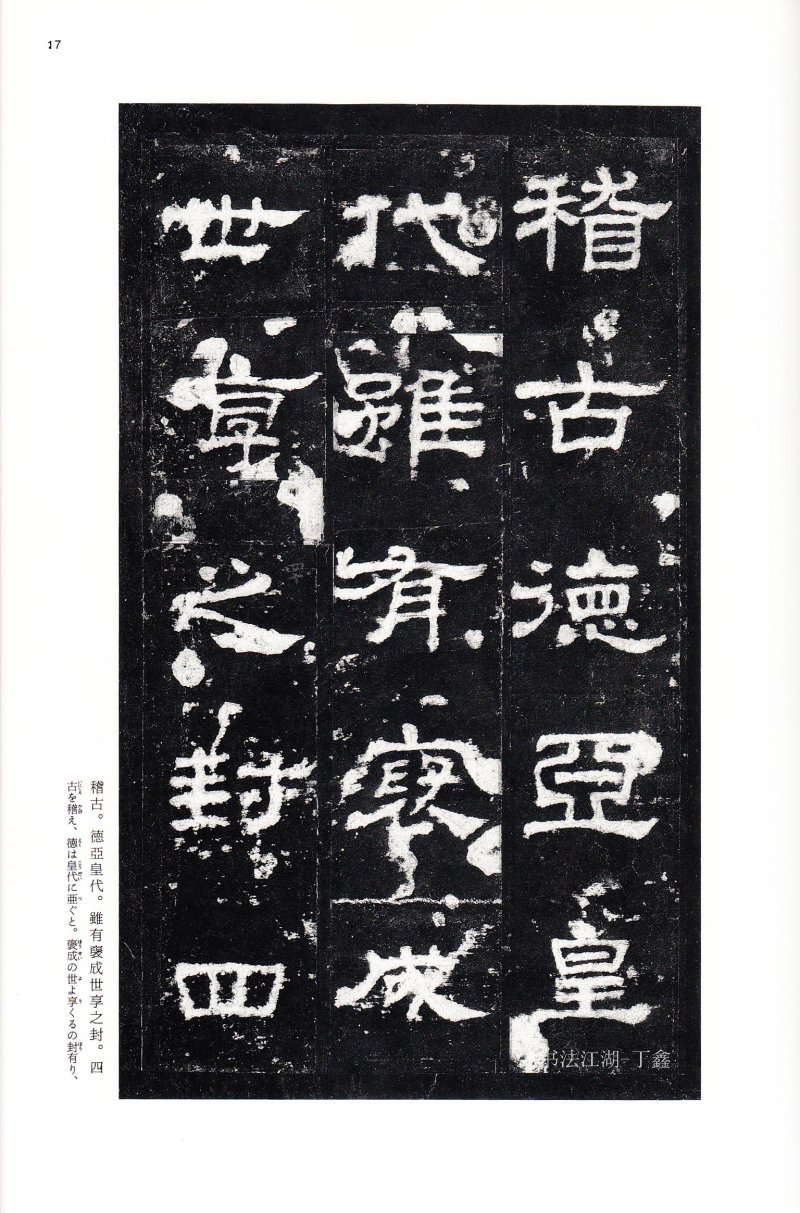 17
稽古德亞皇
代雖有褒成
世享之封四
稽古。德亞皇代。雖有襃成世享之封。四
古を稽え、徳は皇代に亜ぐと。褒成の世よ享くるの封有り、
书法江湖 丁鑫